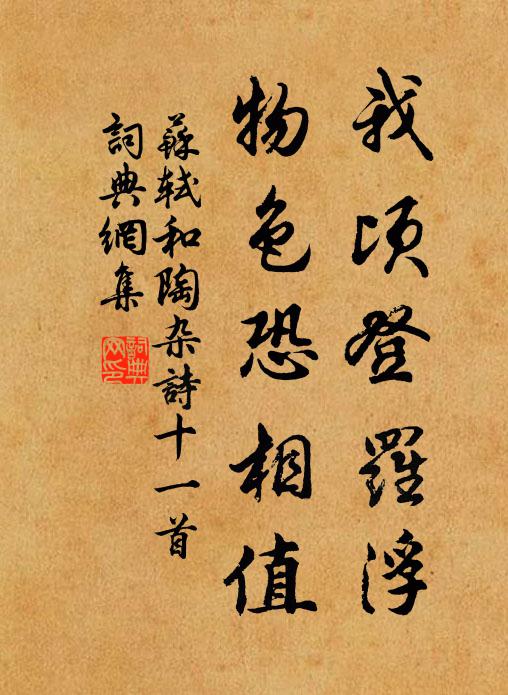 我頃登羅浮
物色恐相值
蘇軾和陶杂詩十一首
詞典網集
詞典
网印